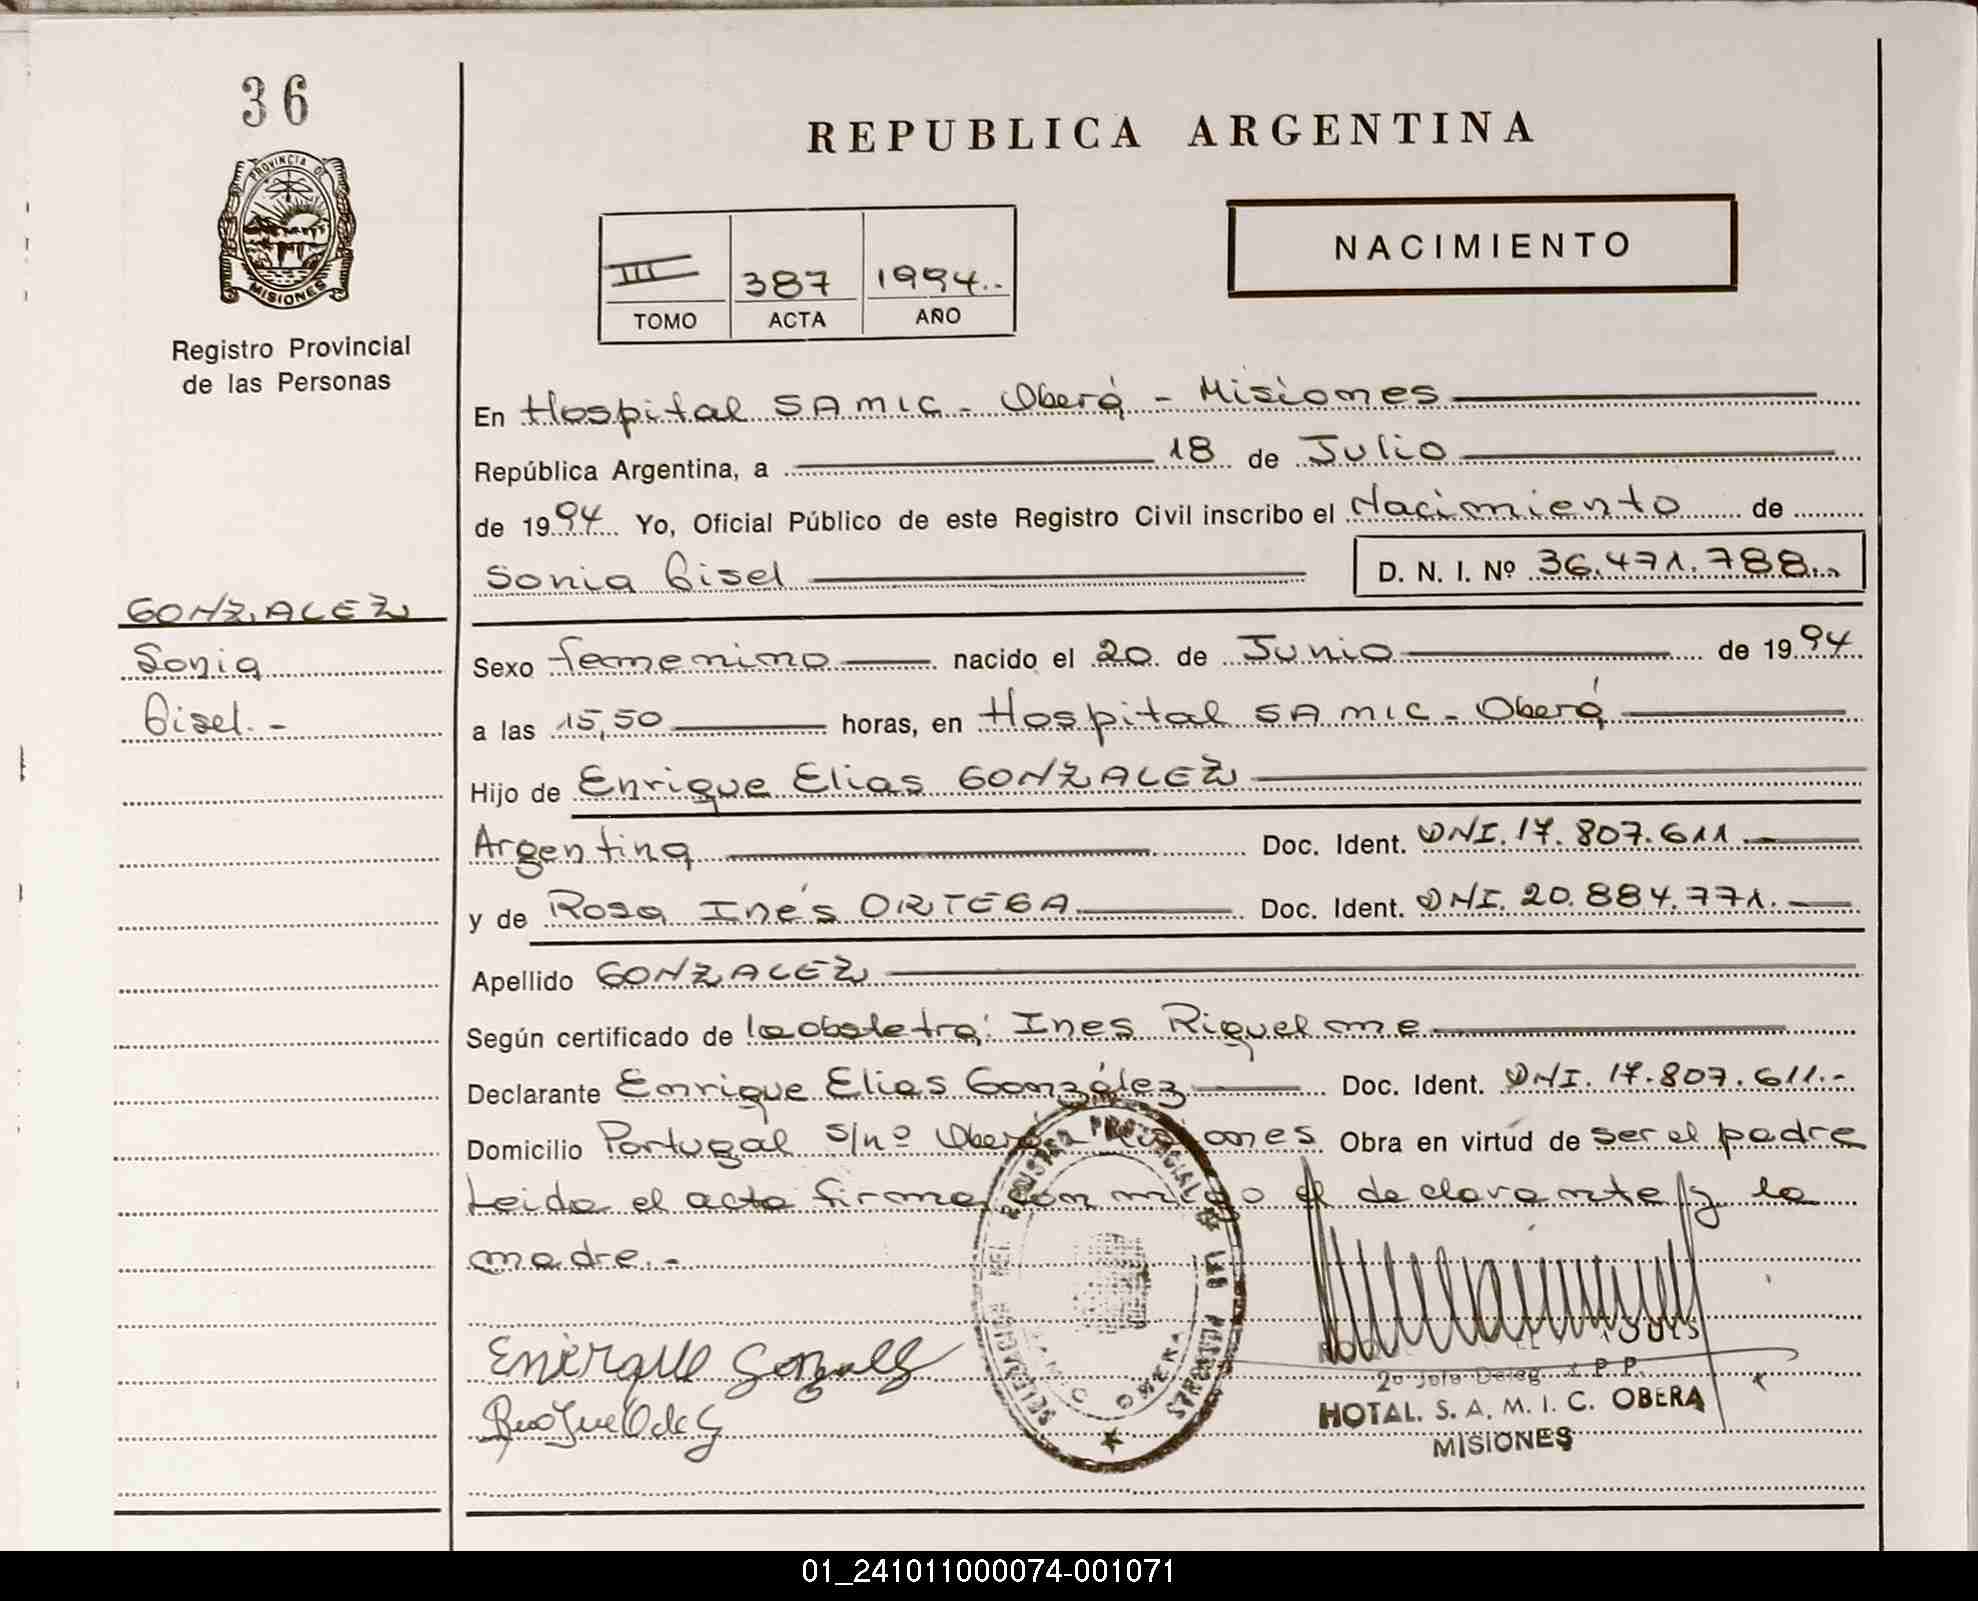 36
PROVINCIA DE
MISIONES
Registro Provincial
de las Personas
REPUBLICA ARGENTINA
III 387 1994..
TOMO ACTA AÑO
NACIMIENTO
En Hospital SAMIC - Oberá - Misiones
República Argentina, a 18 de Julio
de 1994 Yo, Oficial Público de este Registro Civil inscribo el Nacimiento de
Sonia Gisel D. N. I. Nº 36.471.788..
GONZALEZ
Sonia
Gisel.-
Sexo femenino nacido el 20 de Junio de 1994
a las 15,50 horas, en Hospital SAMIC - Oberá
Hijo de Enrique Elias GONZALEZ
Argentina Doc. Ident. DNI. 17.807.611
y de Rosa Inés ORTEGA Doc. Ident. DNI. 20.884.771.
Apellido GONZALEZ
Según certificado de la obstetra: Ines Riquelme
Declarante Enrique Elias González Doc. Ident. DNI. 17.807.611.-
Domicilio Portugal s/nº Oberá Misiones Obra en virtud de ser el padre
Leida el acta firma con migo el declarante y la
madre.-
Enrique Gonzalez
DELEGACION DEL REGISTRO PROVINCIAL DE LAS PERSONAS
SAMIC OBERA
2º Jefe Deleg. R.P.P.
HOTAL. S. A. M. I. C. OBERA
MISIONES
01_241011000074-001071